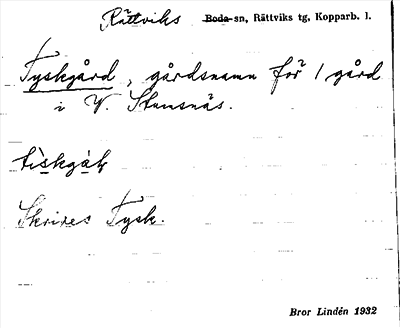 Rättviks Boda-sn, Rättviks tg, Kopparb. l.
Tyskgård, gårdsnamn för 1 gård
i V. Stumsnäs.
Skrives Tysk.
Bror Lindén 1932